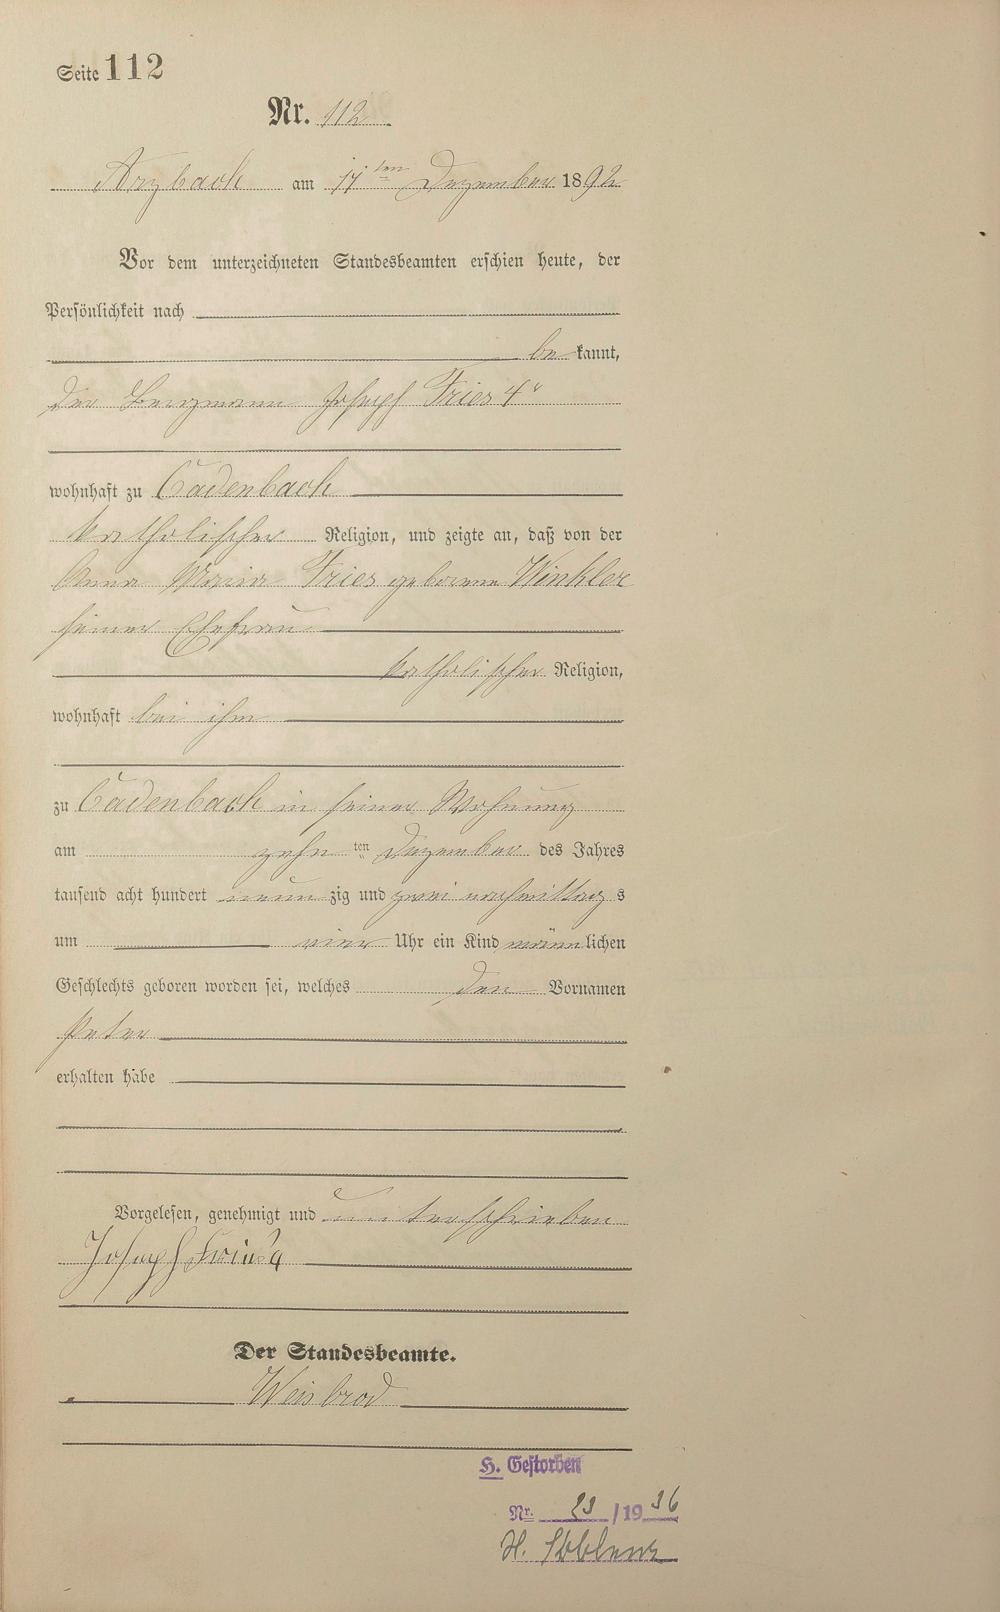 Seite 112
Nr. 112
Arzbach am ten Dezember 1892
Vor dem unterzeichneten Standesbeamten erschien heute, der
Persönlichkeit nach
be kannt,
der Bergmann Joseph Fries 4r
wohnhaft zu Cadenbach
katholischer Religion, und zeigte an, daß von der
Anna Maria Fries geborene Winkler
seiner Ehefrau
katholischer Religion,
wohnhaft bei ihm
zu Cadenbach in seiner Wohnung
am zehn ten Dezember des Jahres
tausend acht hundert neun zig und zwei nachmittag s
um vier Uhr ein Kind männlichen
Geschlechts geboren worden sei, welches den Vornamen
Peter
erhalten habe
Vorgelesen, genehmigt und unterschrieben
Joseph Fries 4
Der Standesbeamte.
Weisbrod
H. Gestorben
Nr. 23 /1936